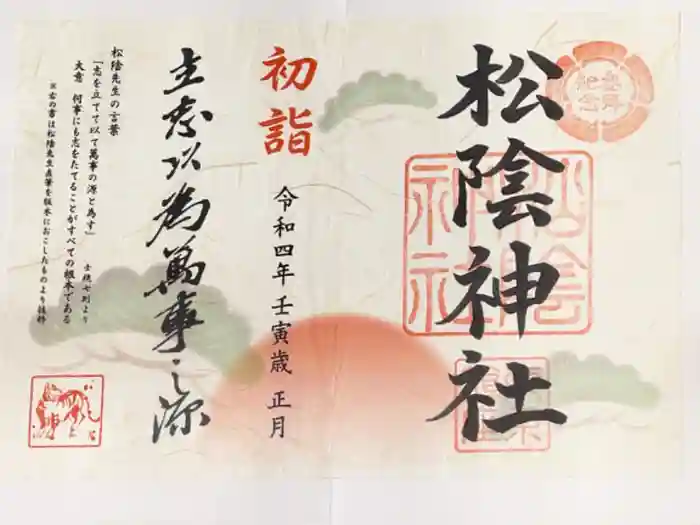 松陰神社
松陰神社
初詣
令和四年 壬寅歳 正月
立志以為萬事之源
松陰先生の言葉
「志を立てて以て萬事の源と為す」
士規七則より
大意 何事にも志をたてることがすべての根本である
※右の書は松陰先生直筆を版木におこしたものより抜粋